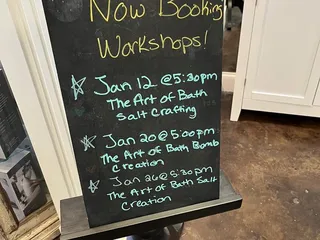 Now Booking
Workshops!
Jan 12 @ 5:30pm
The Art of Bath
Salt Crafting
Jan 20 @ 5:00pm
The Art of Bath Bomb
Creation
Jan 26 @ 5:30pm
The Art of Bath Salt
Creation